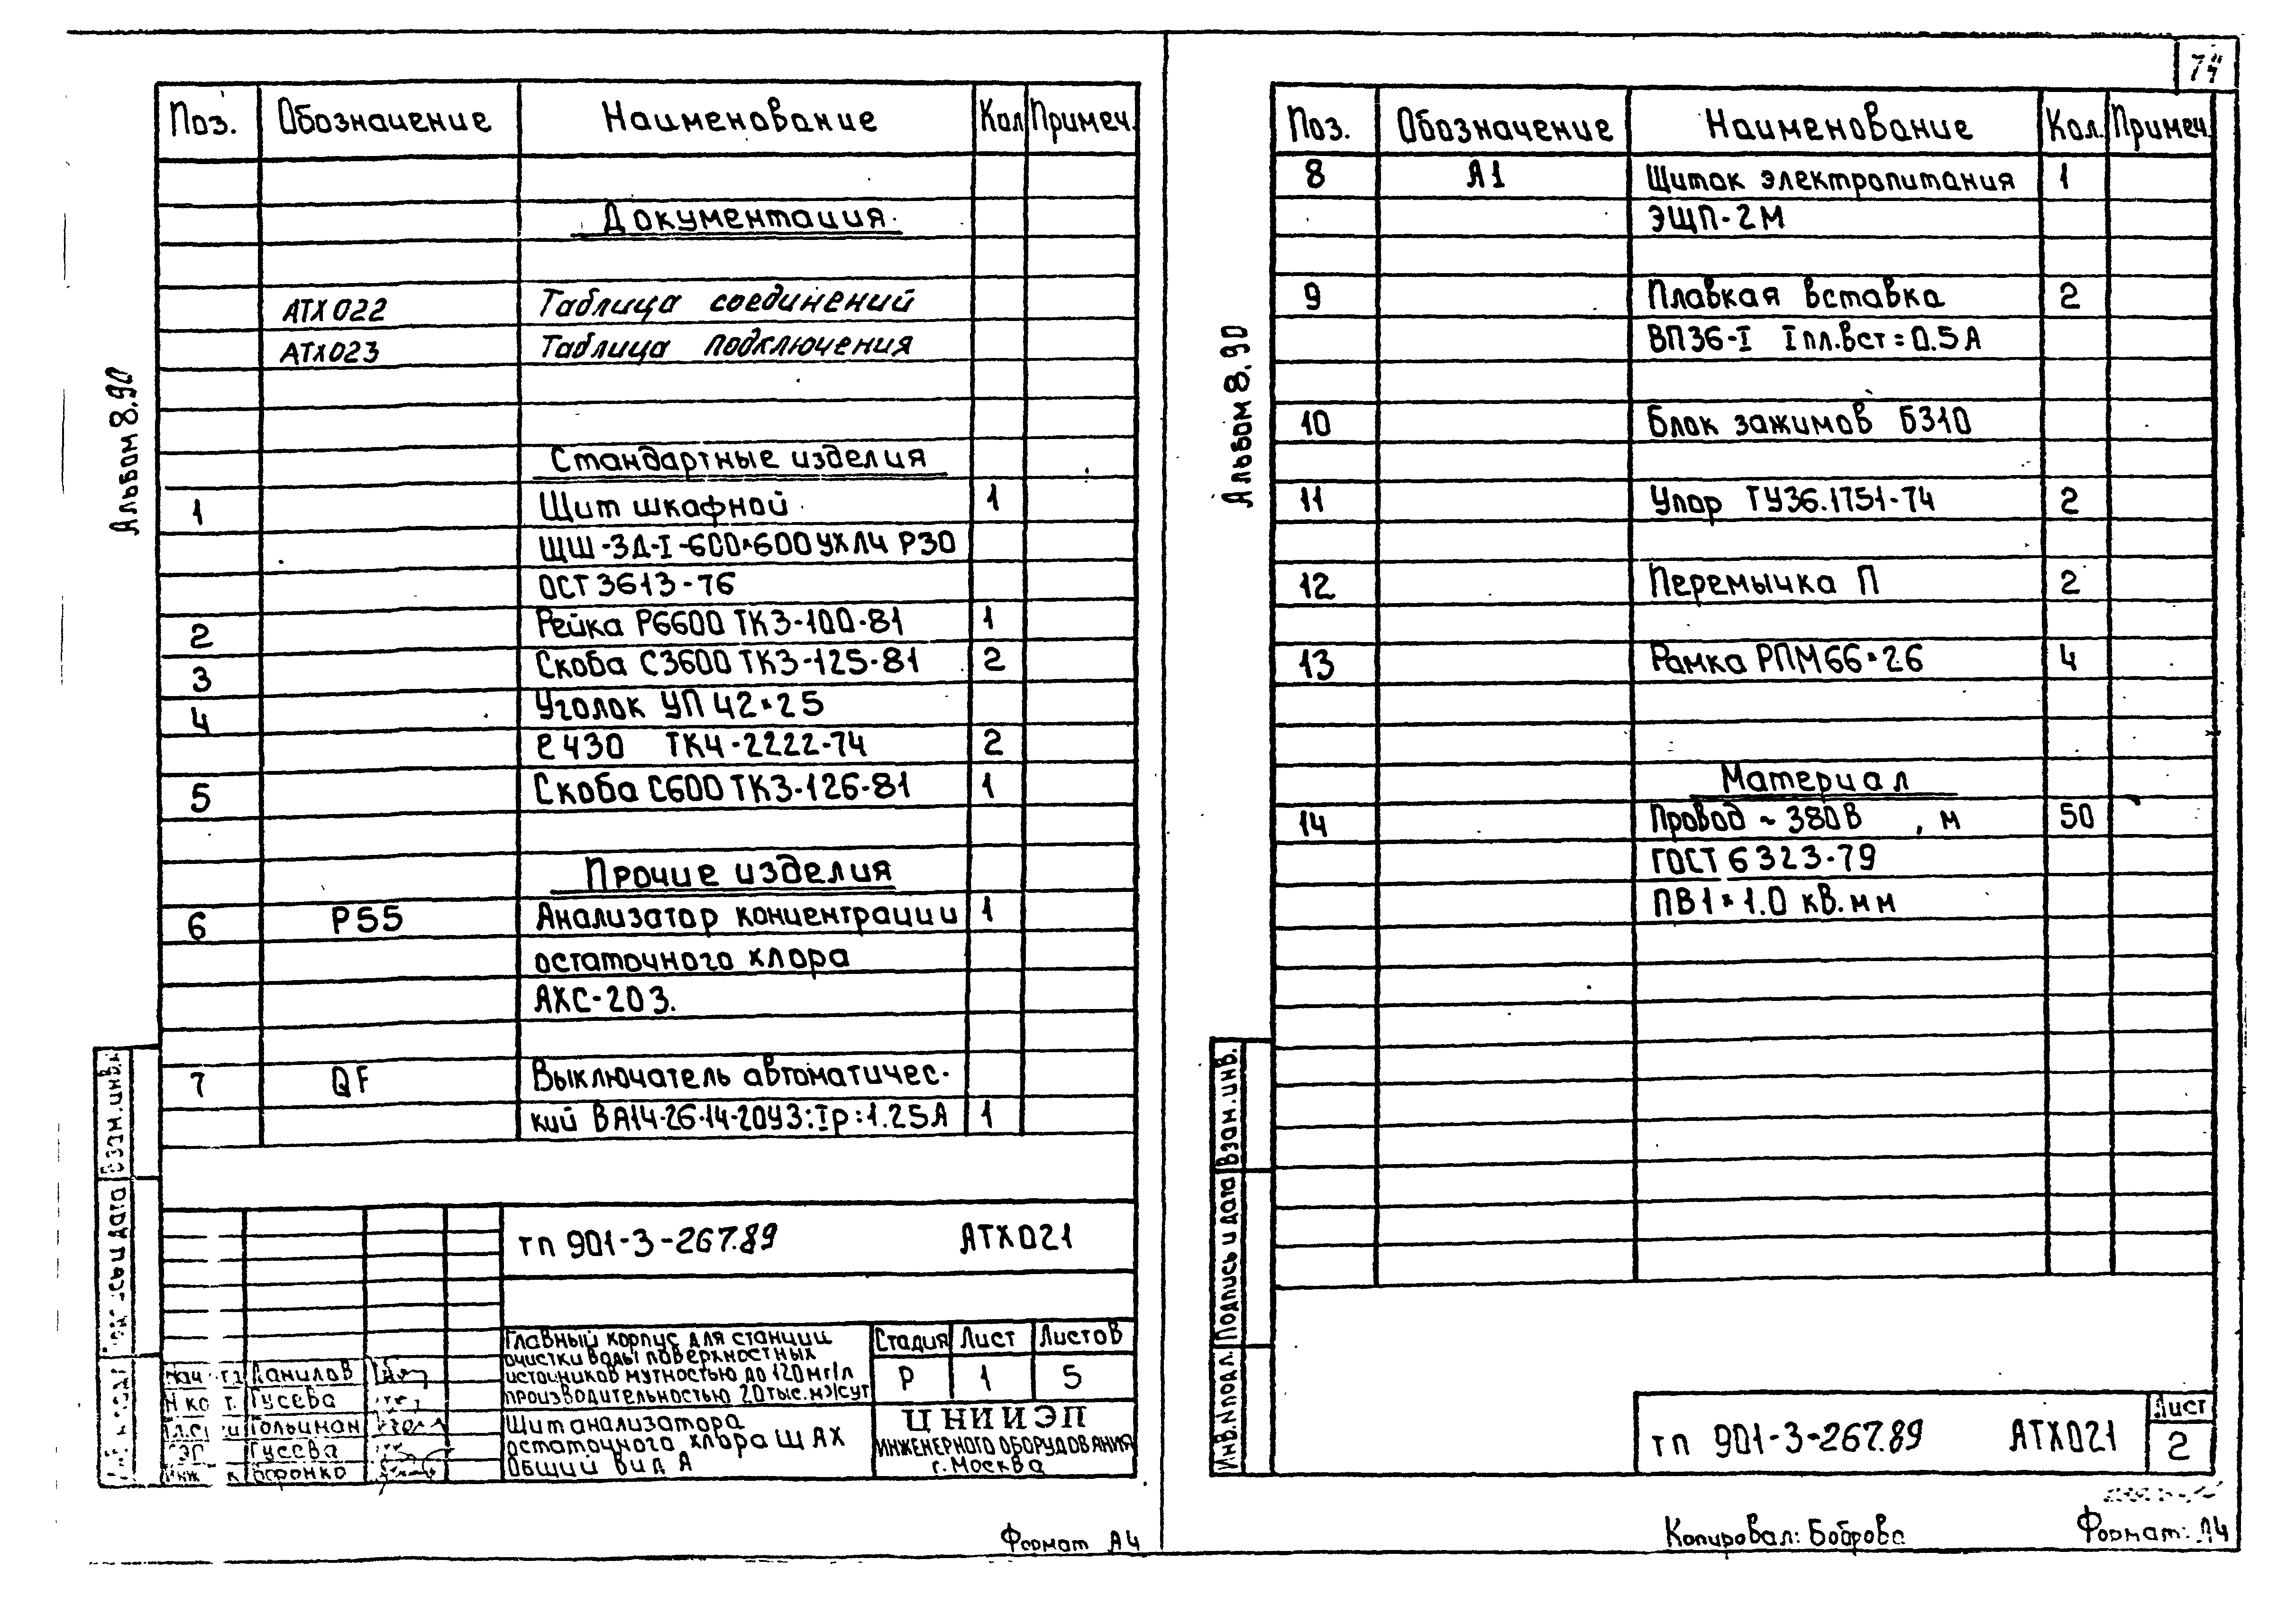 74
Поз. Обозначение Наименование Кол Примеч.
Документация
АТХ022 Таблица соединений
АТХ023 Таблица подключения
Стандартные изделия
1 Щит шкафной 1
ЩШ-ЗД-I-600×600УХЛ4 Р30
ОСТ 3613-76
2 Рейка Р6600 ТК3-100-81 1
3 Скоба С3600 ТК3-125-81 2
4 Уголок УП 42×25
ℓ430 ТК4-2222-74 2
5 Скоба С600 ТК3-126-81 1
Прочие изделия
6 Р55 Анализатор концентрации 1
остаточного хлора
АХС-203.
7 QF Выключатель автоматичес-
кий ВА14-26-14-20У3:Iр:1.25А 1
Альбом 8.90
Взам.инв.
дата
тп 901-3-267.89 АТХ021
Главный корпус для станции
очистки воды поверхностных
источников мутностью до 120мг/л
производительностью 20тыс.м3/сут
Стадия Лист Листов
Р 1 5
Данилов
Гусева
Гольцман
Гусева
Воронко
Щит анализатора
остаточного хлора ЩАХ
Общий вид А
ЦНИИЭП
ИНЖЕНЕРНОГО ОБОРУДОВАНИЯ
г.Москва
Формат А4
Поз. Обозначение Наименование Кол. Примеч.
8 А1 Щиток электропитания 1
ЭЩП-2М
9 Плавкая вставка 2
ВП36-I Iпл.вст=0.5А
10 Блок зажимов Б310
11 Упор ТУ36.1751-74 2
12 Перемычка П 2
13 Рамка РПМ66×26 4
Материал
14 Провод ~380В , м 50
ГОСТ 6323-79
ПВ1×1.0 кв.мм
Альбом 8.90
Взам.инв.
Подпись и дата
Инв.№подл.
тп 901-3-267.89 АТХ021
Лист
2
Копировал: Боброва
Формат: А4